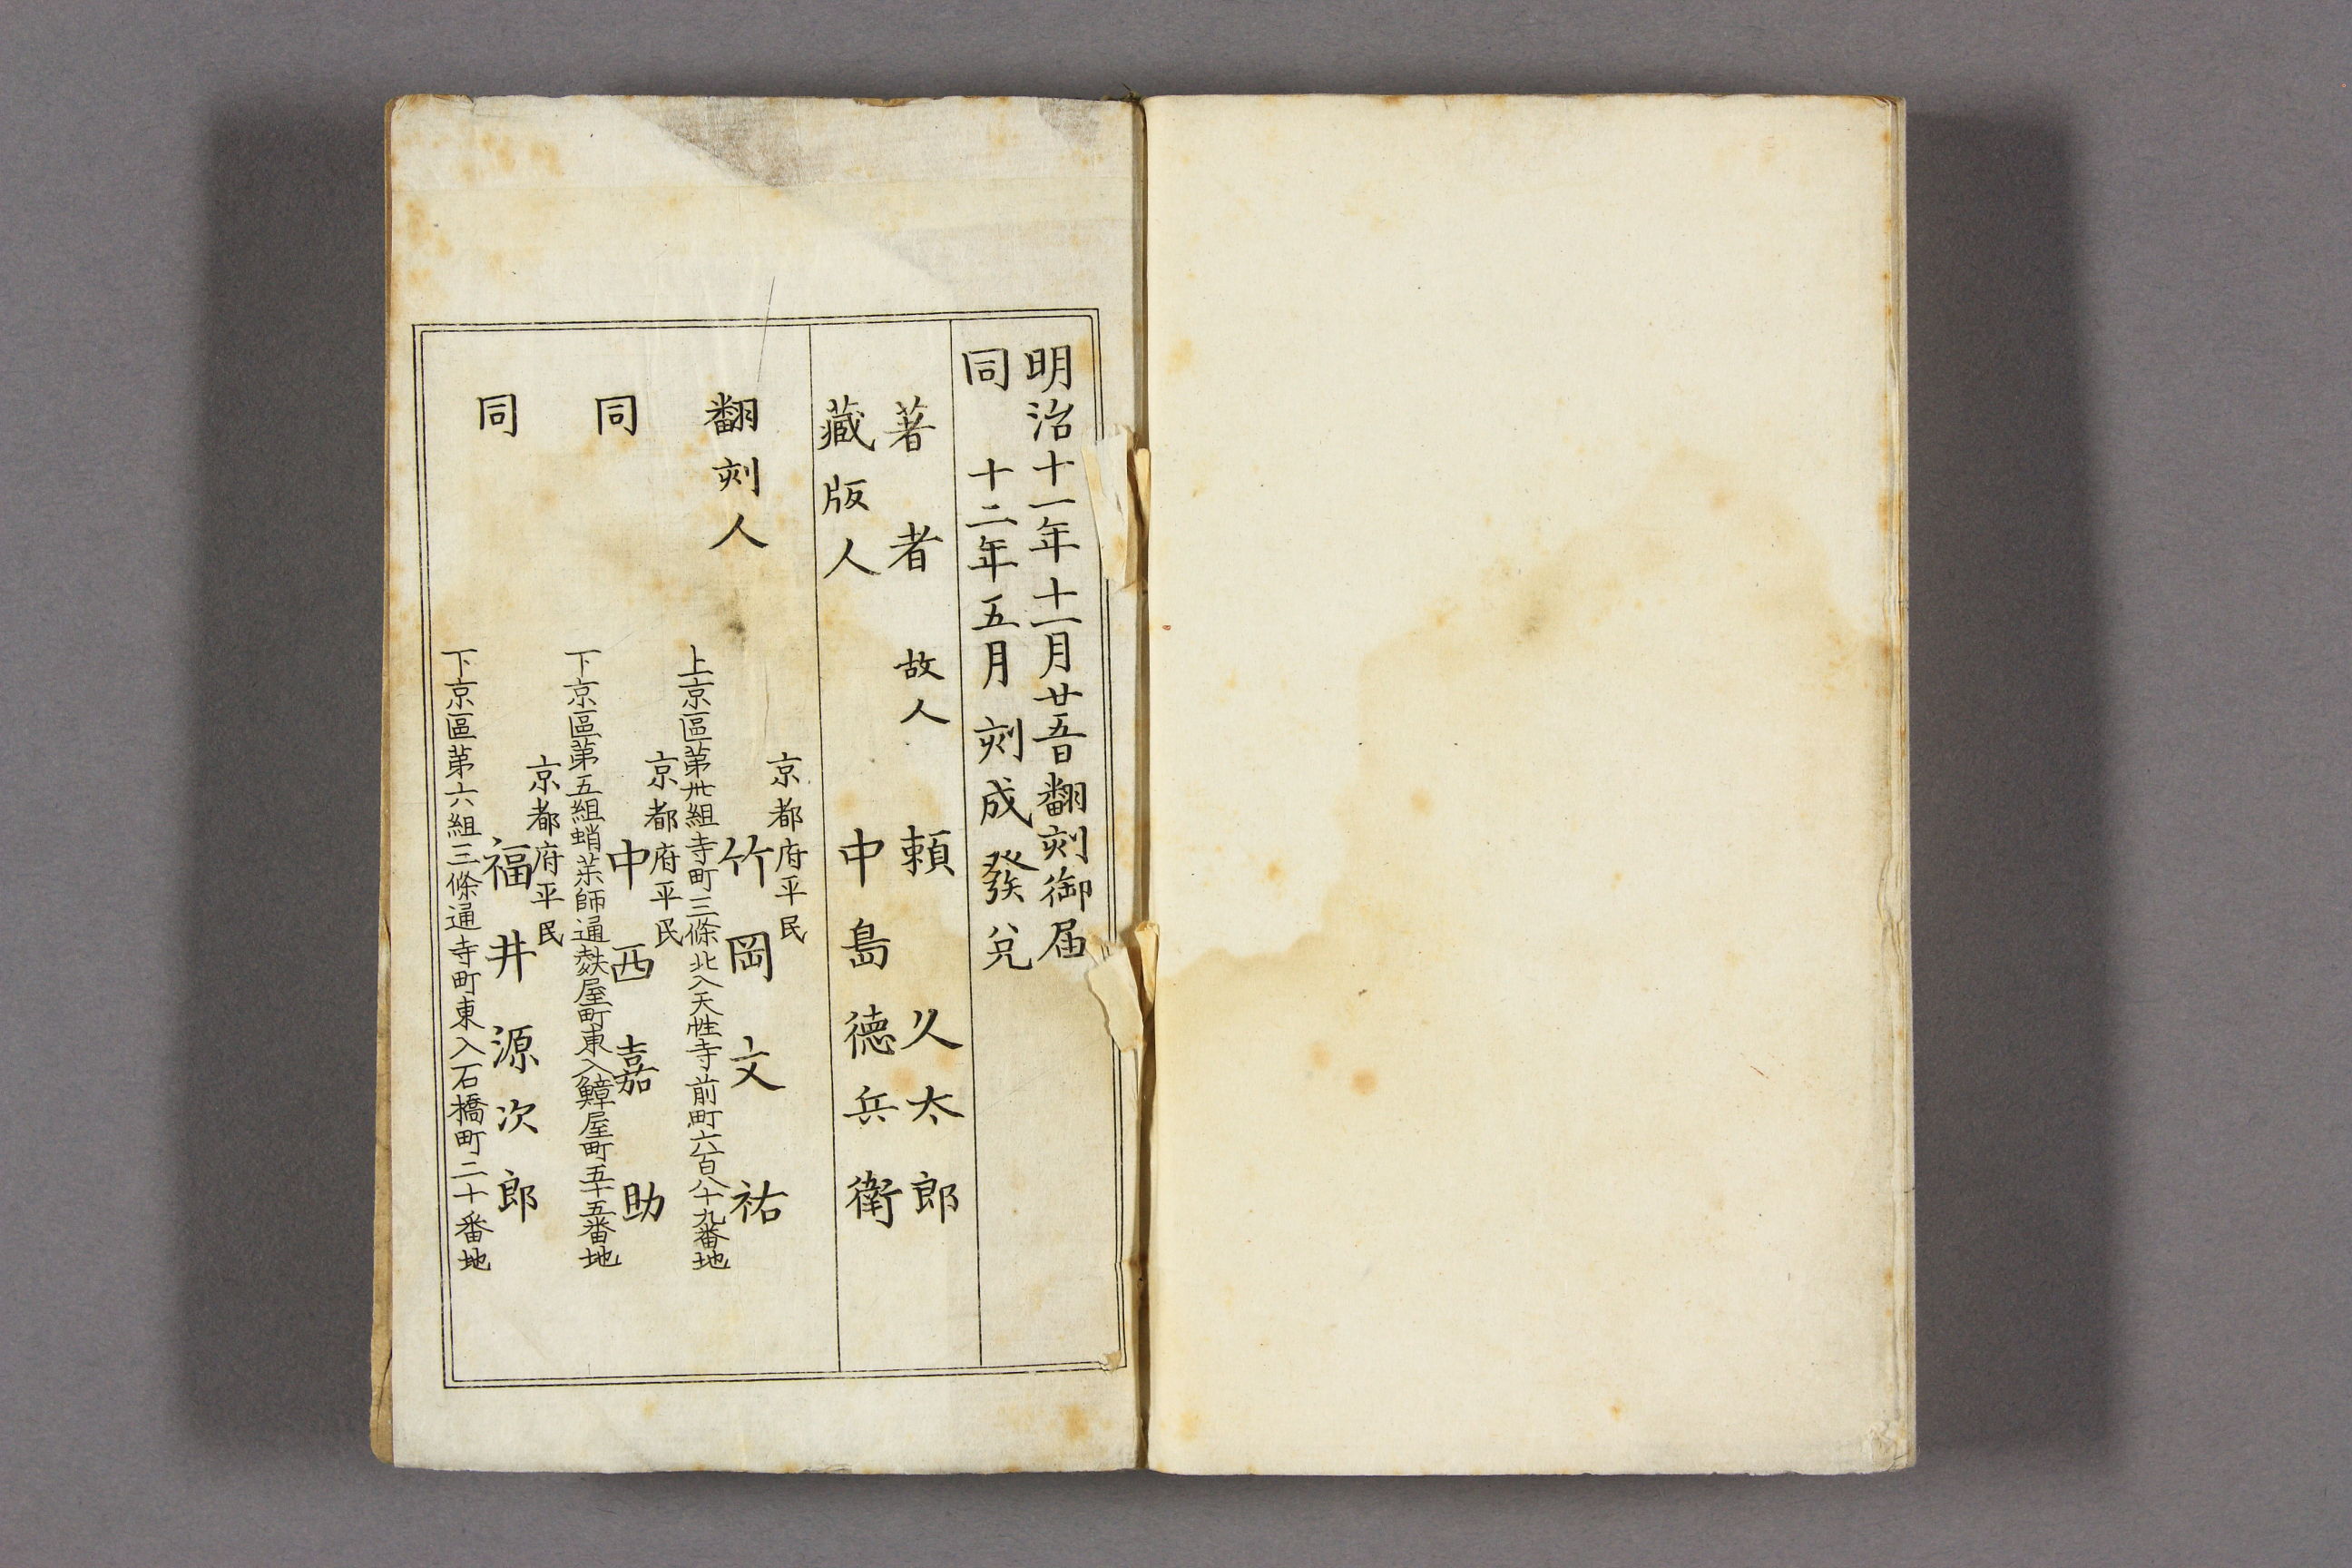 明治十一年十一月廿五日翻刻御届
同 十二年五月刻成發兌
著者 故人 頼久太郎
藏版人 中島徳兵衛
京都府平民
翻刻人 竹岡文祐
上京區第卅組寺町三條北入天性寺前町六百八十九番地
京都府平民
同 中西嘉助
下京區第五組蛸茶師通麩屋町東入鱆屋町五十五番地
京都府平民
同 福井源次郎
下京區第六組三條通寺町東入石橋町二十番地